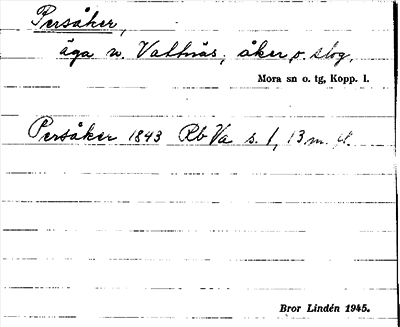 Persåker,
äga n. Vattnäs; åker o. skog.
Mora sn o. tg, Kopp. l.
Persåker 1843 Rb Va s. 1, 13 m. fl.
Bror Lindén 1945.